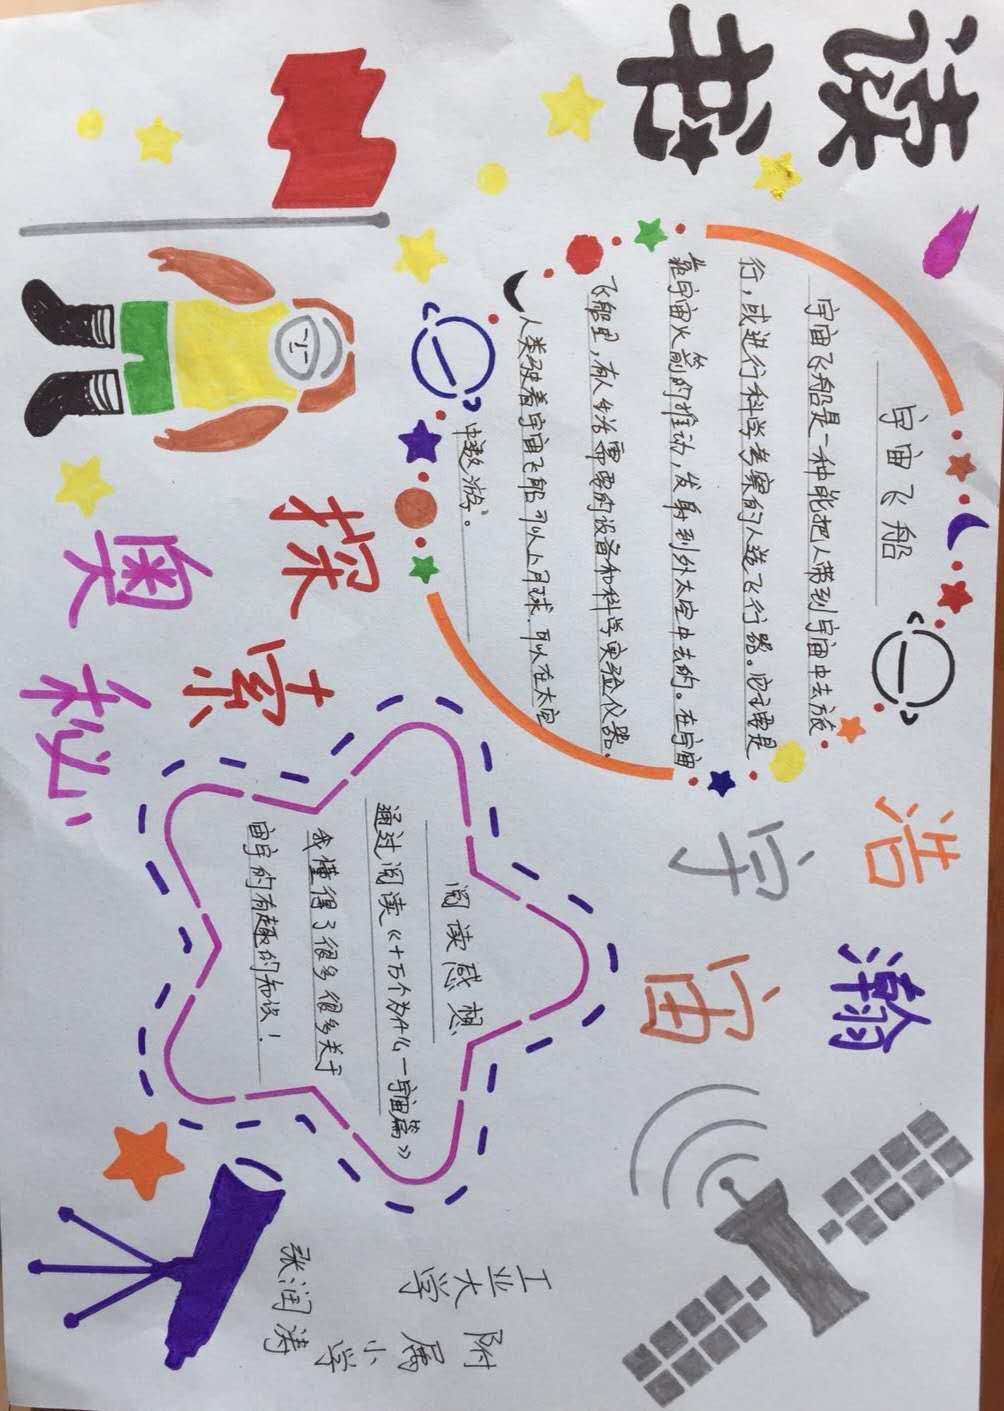 读书
浩瀚
宇宙
宇宙飞船
宇宙飞船是一种能把人带到宇宙中去旅
行,或进行科学考察的人造飞行器。它主要是
靠宇宙火箭的推动,发射到外太空中去的。在宇宙
飞船里,有人生活需要的设备和科学实验仪器。
人类驶着宇宙飞船可以上月球,可以在太空
中遨游。
探索
奥秘
阅读感想
通过阅读《十万个为什么—宇宙篇》
我懂得了很多很多关于
宙宇的有趣的知识!
工业大学
附属小学
张润涛